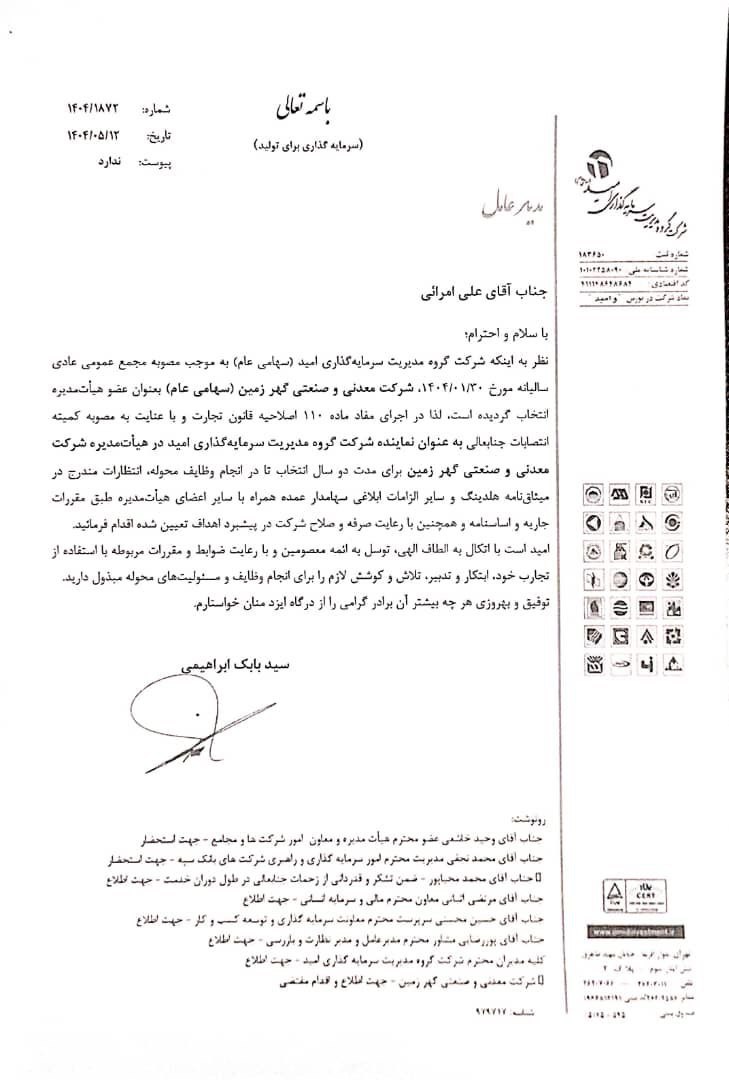 باسمه تعالی
(سرمایه گذاری برای تولید)
شماره: ۱۴۰۴/۱۸۷۲
تاریخ: ۱۴۰۴/۰۵/۱۲
پیوست: ندارد
شرکت گروه مدیریت سرمایه گذاری امید
شماره ثبت ۱۸۳۶۵۰
شماره شناسه ملی ۱۰۱۰۲۲۵۸۰۹۰
کد اقتصادی: ۴۱۱۱۴۸۶۴۸۶۸۴
نماد شرکت در بورس "وامید"
مدیر عامل
جناب آقای علی امرائی
با سلام و احترام؛
نظر به اینکه شرکت گروه مدیریت سرمایه‌گذاری امید (سهامی عام) به موجب مصوبه مجمع عمومی عادی
سالیانه مورخ ۱۴۰۴/۰۱/۳۰، شرکت معدنی و صنعتی گهر زمین (سهامی عام) بعنوان عضو هیأت‌مدیره
انتخاب گردیده است، لذا در اجرای مفاد ماده ۱۱۰ اصلاحیه قانون تجارت و با عنایت به مصوبه کمیته
انتصابات جنابعالی به عنوان نماینده شرکت گروه مدیریت سرمایه‌گذاری امید در هیأت‌مدیره شرکت
معدنی و صنعتی گهر زمین برای مدت دو سال انتخاب تا در انجام وظایف محوله، انتظارات مندرج در
میثاق‌نامه هلدینگ و سایر الزامات ابلاغی سهامدار عمده همراه با سایر اعضای هیأت‌مدیره طبق مقررات
جاریه و اساسنامه و همچنین با رعایت صرفه و صلاح شرکت در پیشبرد اهداف تعیین شده اقدام فرمائید.
امید است با اتکال به الطاف الهی، توسل به ائمه معصومین و با رعایت ضوابط و مقررات مربوطه با استفاده از
تجارب خود، ابتکار و تدبیر، تلاش و کوشش لازم را برای انجام وظایف و مسئولیت‌های محوله مبذول دارید.
توفیق و بهروزی هر چه بیشتر آن برادر گرامی را از درگاه ایزد منان خواستارم.
سید بابک ابراهیمی
رونوشت:
جناب آقای وحید خاشعی عضو محترم هیأت مدیره و معاون امور شرکت ها و مجامع - جهت استحضار
جناب آقای محمد نجفی مدیریت محترم امور سرمایه گذاری و راهبری شرکت های بانک سپه - جهت استحضار
جناب آقای محمد محیاپور - ضمن تشکر و قدردانی از زحمات جنابعالی در طول دوران خدمت - جهت اطلاع
جناب آقای مرتضی اثباتی معاون محترم مالی و سرمایه انسانی - جهت اطلاع
جناب آقای حسین محسنی سرپرست محترم معاونت سرمایه گذاری و توسعه کسب و کار - جهت اطلاع
جناب آقای پوررضایی مشاور محترم مدیرعامل و مدیر نظارت و بازرسی - جهت اطلاع
کلیه مدیران محترم شرکت گروه مدیریت سرمایه گذاری امید - جهت اطلاع
شرکت معدنی و صنعتی گهر زمین - جهت اطلاع و اقدام مقتضی
شناسه: ۹۷۹۷۱۷
TUV
CERT
www.omidinvestment.ir